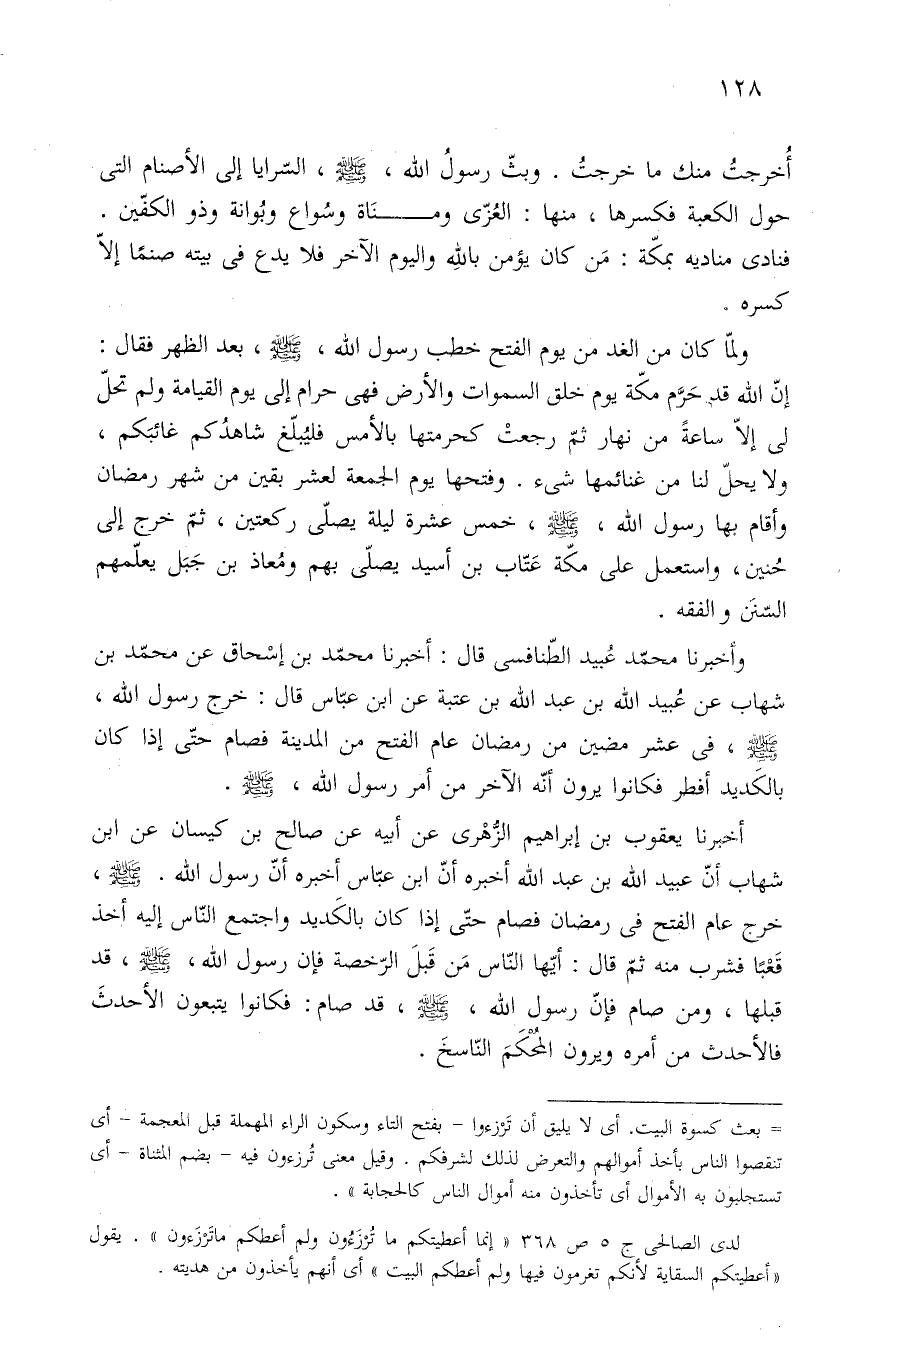 ١٢٨
أُخرجتُ منك ما خرجتُ . وبثّ رسولُ الله ، ﷺ ، السّرايا إلى الأصنام التى
حول الكعبة فكسرها ، منها : العُزّى ومـــــنَاة وسُواع وبُوانة وذو الكفّين .
فنادى مناديه بمكّة : مَن كان يؤمن باللهِ واليوم الآخر فلا يدع فى بيته صنمًا إلاّ
كسره .
ولمّا كان من الغد من يوم الفتح خطب رسول الله ، ﷺ ، بعد الظهر فقال :
إنّ الله قد حَرَّم مكّة يوم خلق السموات والأرض فهى حرام إلى يوم القيامة ولم تحلّ
لى إلاّ ساعةً من نهار ثمّ رجعتْ كحرمتها بالأمس فليُبلّغ شاهدُكم غائبَكم ،
ولا يحلّ لنا من غنائمها شىء . وفتحها يوم الجمعة لعشر بقين من شهر رمضان
وأقام بها رسول الله ، ﷺ ، خمس عشرة ليلة يصلّى ركعتين ، ثمّ خرج إلى
حُنين، واستعمل على مكّة عَتّاب بن أسيد يصلّى بهم ومُعاذ بن جَبَل يعلّمهم
السّنَن و الفقه .
وأخبرنا محمّد عُبيد الطّنافسى قال : أخبرنا محمّد بن إسْحاق عن محمّد بن
شهاب عن عُبيد الله بن عبد الله بن عتبة عن ابن عبّاس قال : خرج رسول الله ،
ﷺ ، فى عشر مضين من رمضان عام الفتح من المدينة فصام حتّى إذا كان
بالكَديد أفطر فكانوا يرون أنّه الآخر من أمر رسول الله ، ﷺ .
أخبرنا يعقوب بن إبراهيم الزُّهْرى عن أبيه عن صالح بن كيسان عن ابن
شهاب أنّ عبيد الله بن عبد الله أخبره أنّ ابن عبّاس أخبره أنّ رسول الله . ﷺ ،
خرج عام الفتح فى رمضان فصام حتّى إذا كان بالكَديد واجتمع النّاس إليه أخذ
قَعْبًا فشرب منه ثمّ قال : أيّها النّاس مَن قَبلَ الرّخصة فإن رسول الله ، ﷺ ، قد
قبلها ، ومن صام فإنّ رسول الله ، ﷺ ، قد صام : فكانوا يتبعون الأحدثَ
فالأحدث من أمره ويرون المُحْكَمَ النّاسخَ .
= بعث كسوة البيت. أى لا يليق أن تَرْزءوا - بفتح التاء وسكون الراء المهملة قبل المعجمة - أى
تنقصوا الناس بأخذ أموالهم والتعرض لذلك لشرفكم . وقيل معنى تُرزءون فيه - بضم المثناة - أى
تستجلبون به الأموال أى تأخذون منه أموال الناس كالحجابة » .
لدى الصالحى ج ٥ ص ٣٦٨ « إنما أعطيتكم ما تُرْزَءُون ولم أعطكم ماتَرْزَءون » . يقول
«أعطيتكم السقاية لأنكم تغرمون فيها ولم أعطكم البيت » أى أنهم يأخذون من هديته .